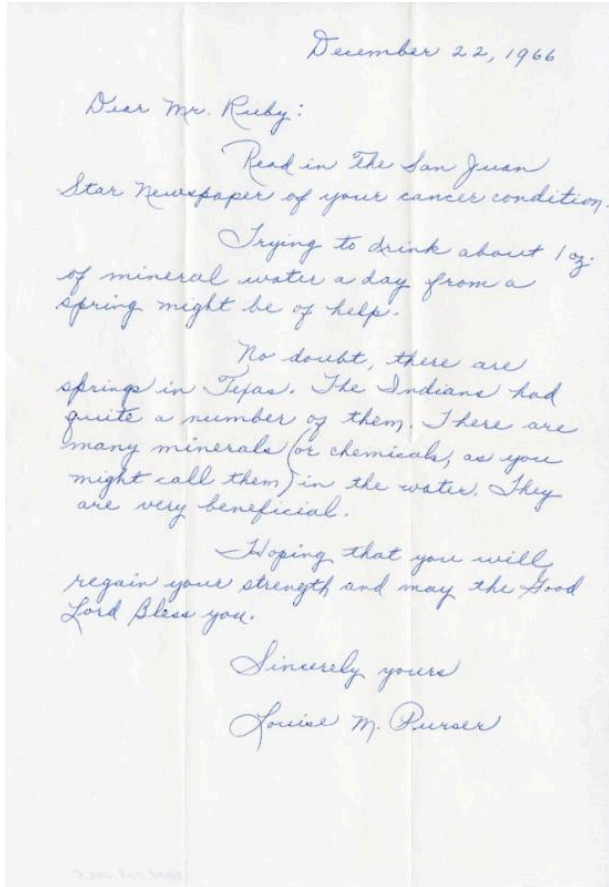 December 22, 1966
Dear Mr. Ruby:
Read in The San Juan
Star Newspaper of your cancer condition.
Trying to drink about 1 oz.
of mineral water a day from a
spring might be of help.
No doubt, there are
springs in Texas. The Indians had
quite a number of them. There are
many minerals (or chemicals, as you
might call them) in the water. They
are very beneficial.
Hoping that you will
regain your strength and may the Good
Lord Bless you.
Sincerely yours
Louise M. Purser